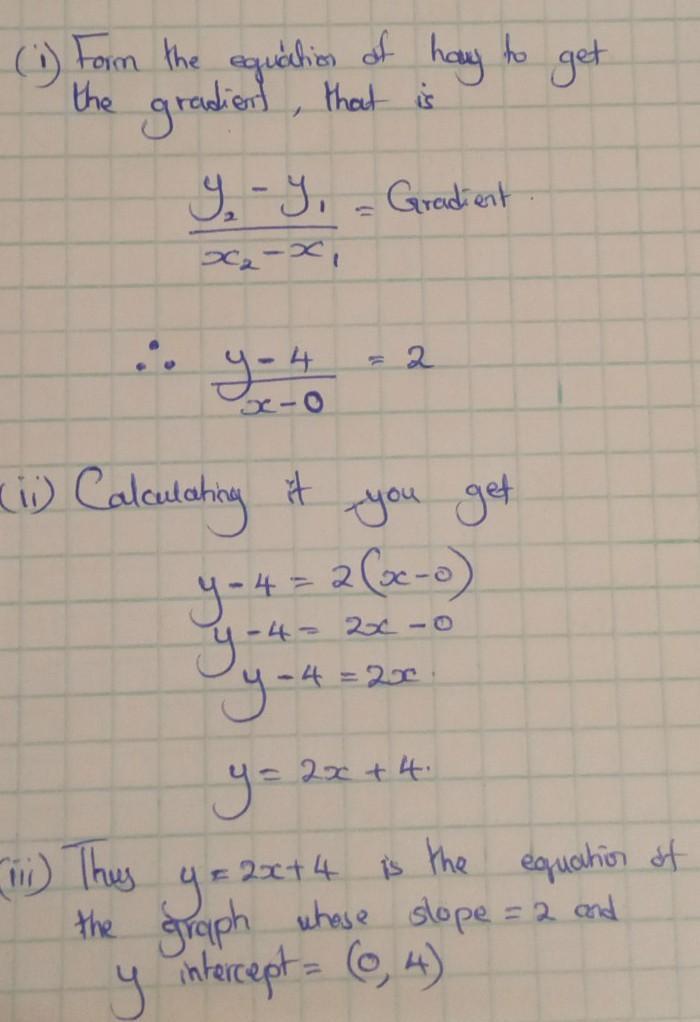 (i) Form the equation of how to get
the gradient, that is
y₂ - y₁ = Gradient.
x₂ - x₁
∴ y - 4 = 2
x - 0
(ii) Calculating it you get
y - 4 = 2(x - 0)
y - 4 = 2x - 0
y - 4 = 2x.
y = 2x + 4.
(iii) Thus y = 2x + 4 is the equation of
the graph whose slope = 2 and
y intercept = (0, 4)